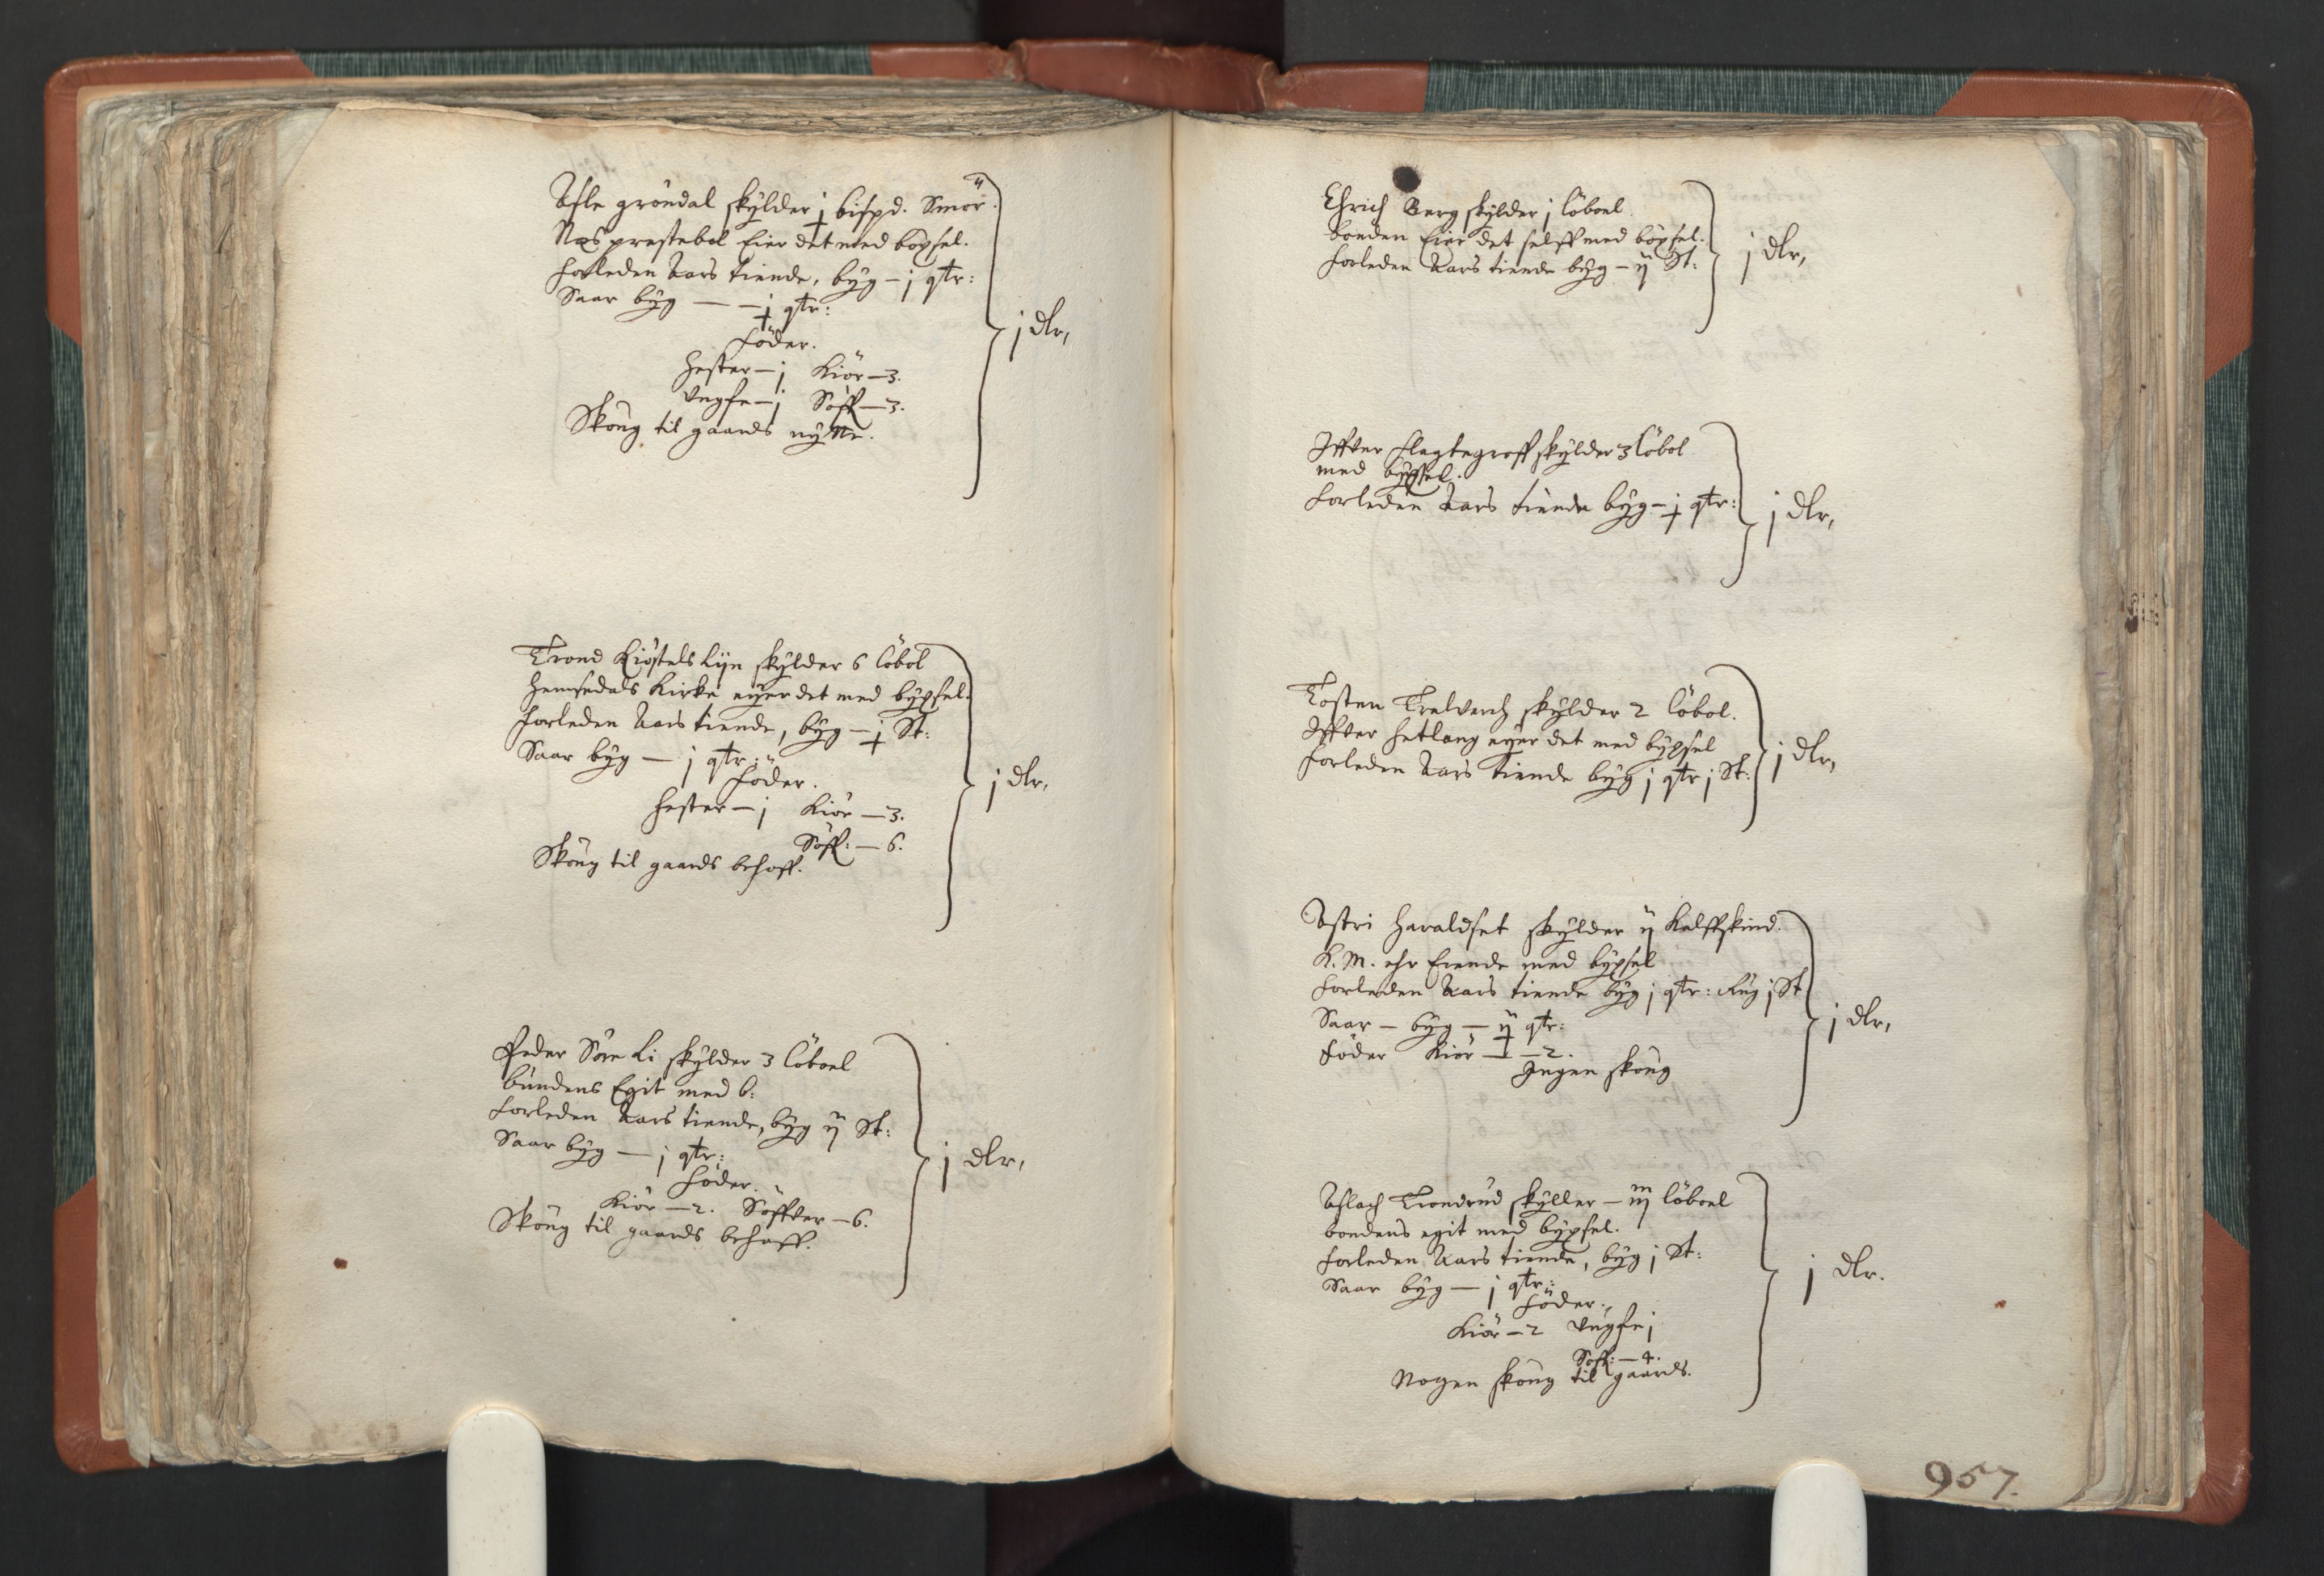 Asle gröndal skÿlder j bispd. Smör.
Næs prestebol Eier det med böxsel.
Forleden Aars tiende, bÿg – j qtr:
Saar bÿg — – j qtr:
Föder.
Hester – j Kiör – 3.
Vngfe – j Söff – 3.
Skoug til gaards nÿtte.
Trond Kiöstels Lijn skÿlder 6 löbol
Hemsedals Kirke eÿer det med bÿxsel.
Forleden Aars tiende, bÿg – j St:
Saar bÿg — j qtr:
Föder.
Hester – j Kiör – 3.
Söff: – 6.
Skoug til gaards behoff.
Peder Söre Li skÿlder 3 löboel
bundens Egit med b:
Forleden Aars tiende, bÿg ij St:
Saar bÿg — j qtr:
Föder.
Kiör – 2. Söffver – 6.
Skoug til gaards behoff.
j dlr,
j dlr,
j dlr,
Ehrich Berg skÿlder j löboel
bonden Eier det selff med böxsel.
Forleden Aars tiende bÿg – ij St:
j dlr,
Iffver Flagtegroff skÿlder 3 löbol
med bÿxsel.
Forleden Aars tiende bÿg – j qtr:
j dlr,
Tosten Trelverch skÿlder 2 löbol.
Iffver Hetlang eÿer det med bÿxsel
Forleden Aars tiende bÿg j qtr j St:
j dlr,
Astri Haraldset skÿlder ij Kalffskind.
K. M. ehr Eiende med bÿxsel
Forleden Aars tiende bÿg j qtr: Rug j St
Saar – bÿg – ij qtr:
Föder Kiör – – 2.
Ingen skoug
j dlr,
Aslach Trondrud skÿller – iij löboel
bondens egit med bÿxsel.
Forleden Aars tiende, bÿg j St:
Saar bÿg — j qtr:
Föder.
Kiör – 2 Vngfe j
Söff: – 4.
Nogen skoug til gaards.
j dlr.
957.